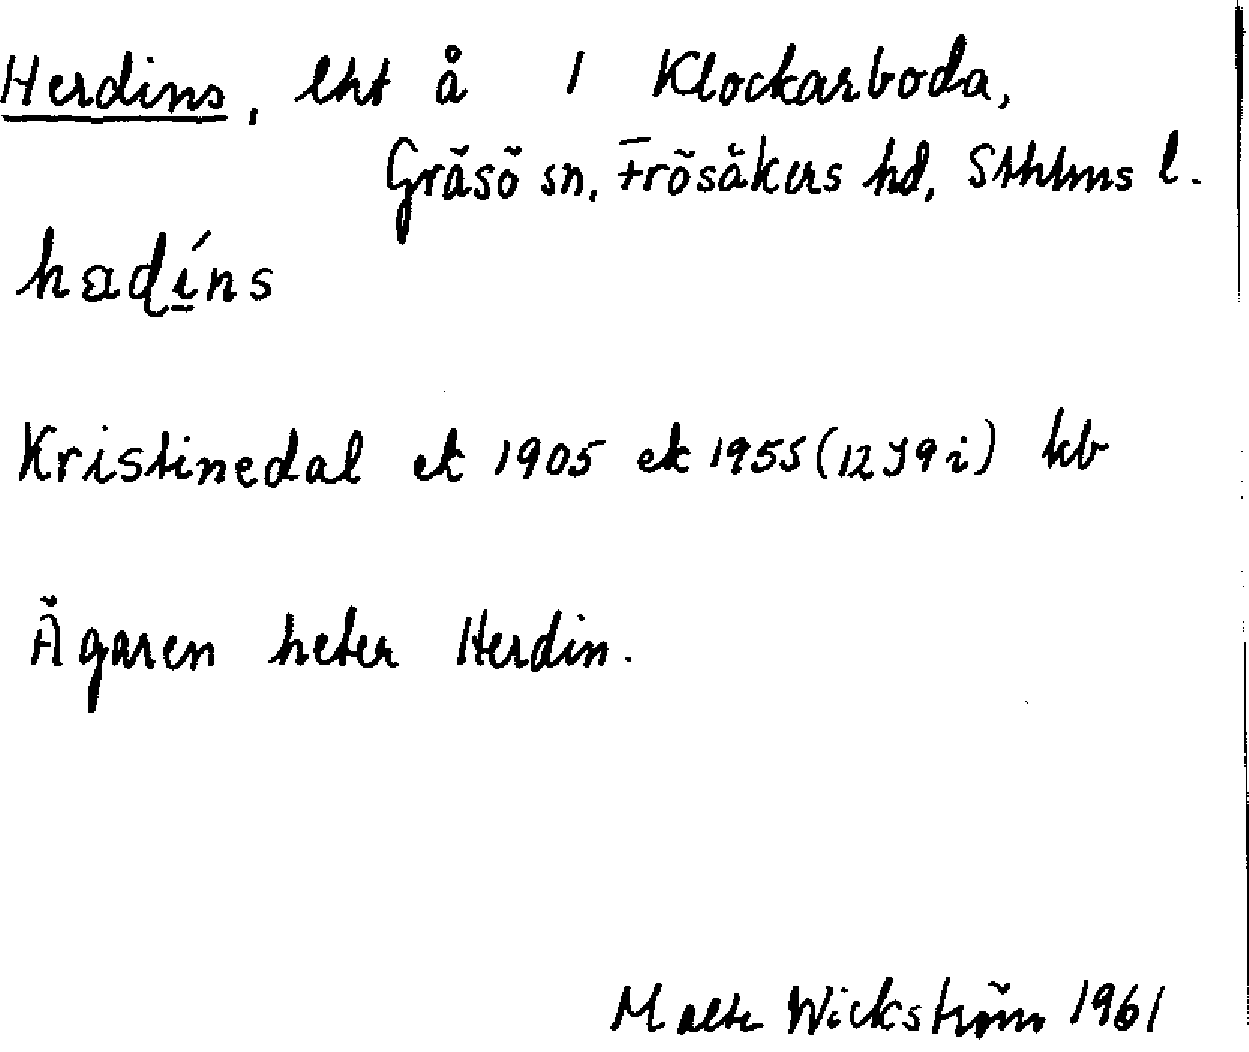 Herdins, lht å 1 Klockarboda,
Gräsö sn, Frösåkers hd, Sthlms l.
hadíns
Kristinedal ek 1905 ek 1955 (12 I 9 i) kb
Ägaren heter Herdin.
Malte Wickström 1961